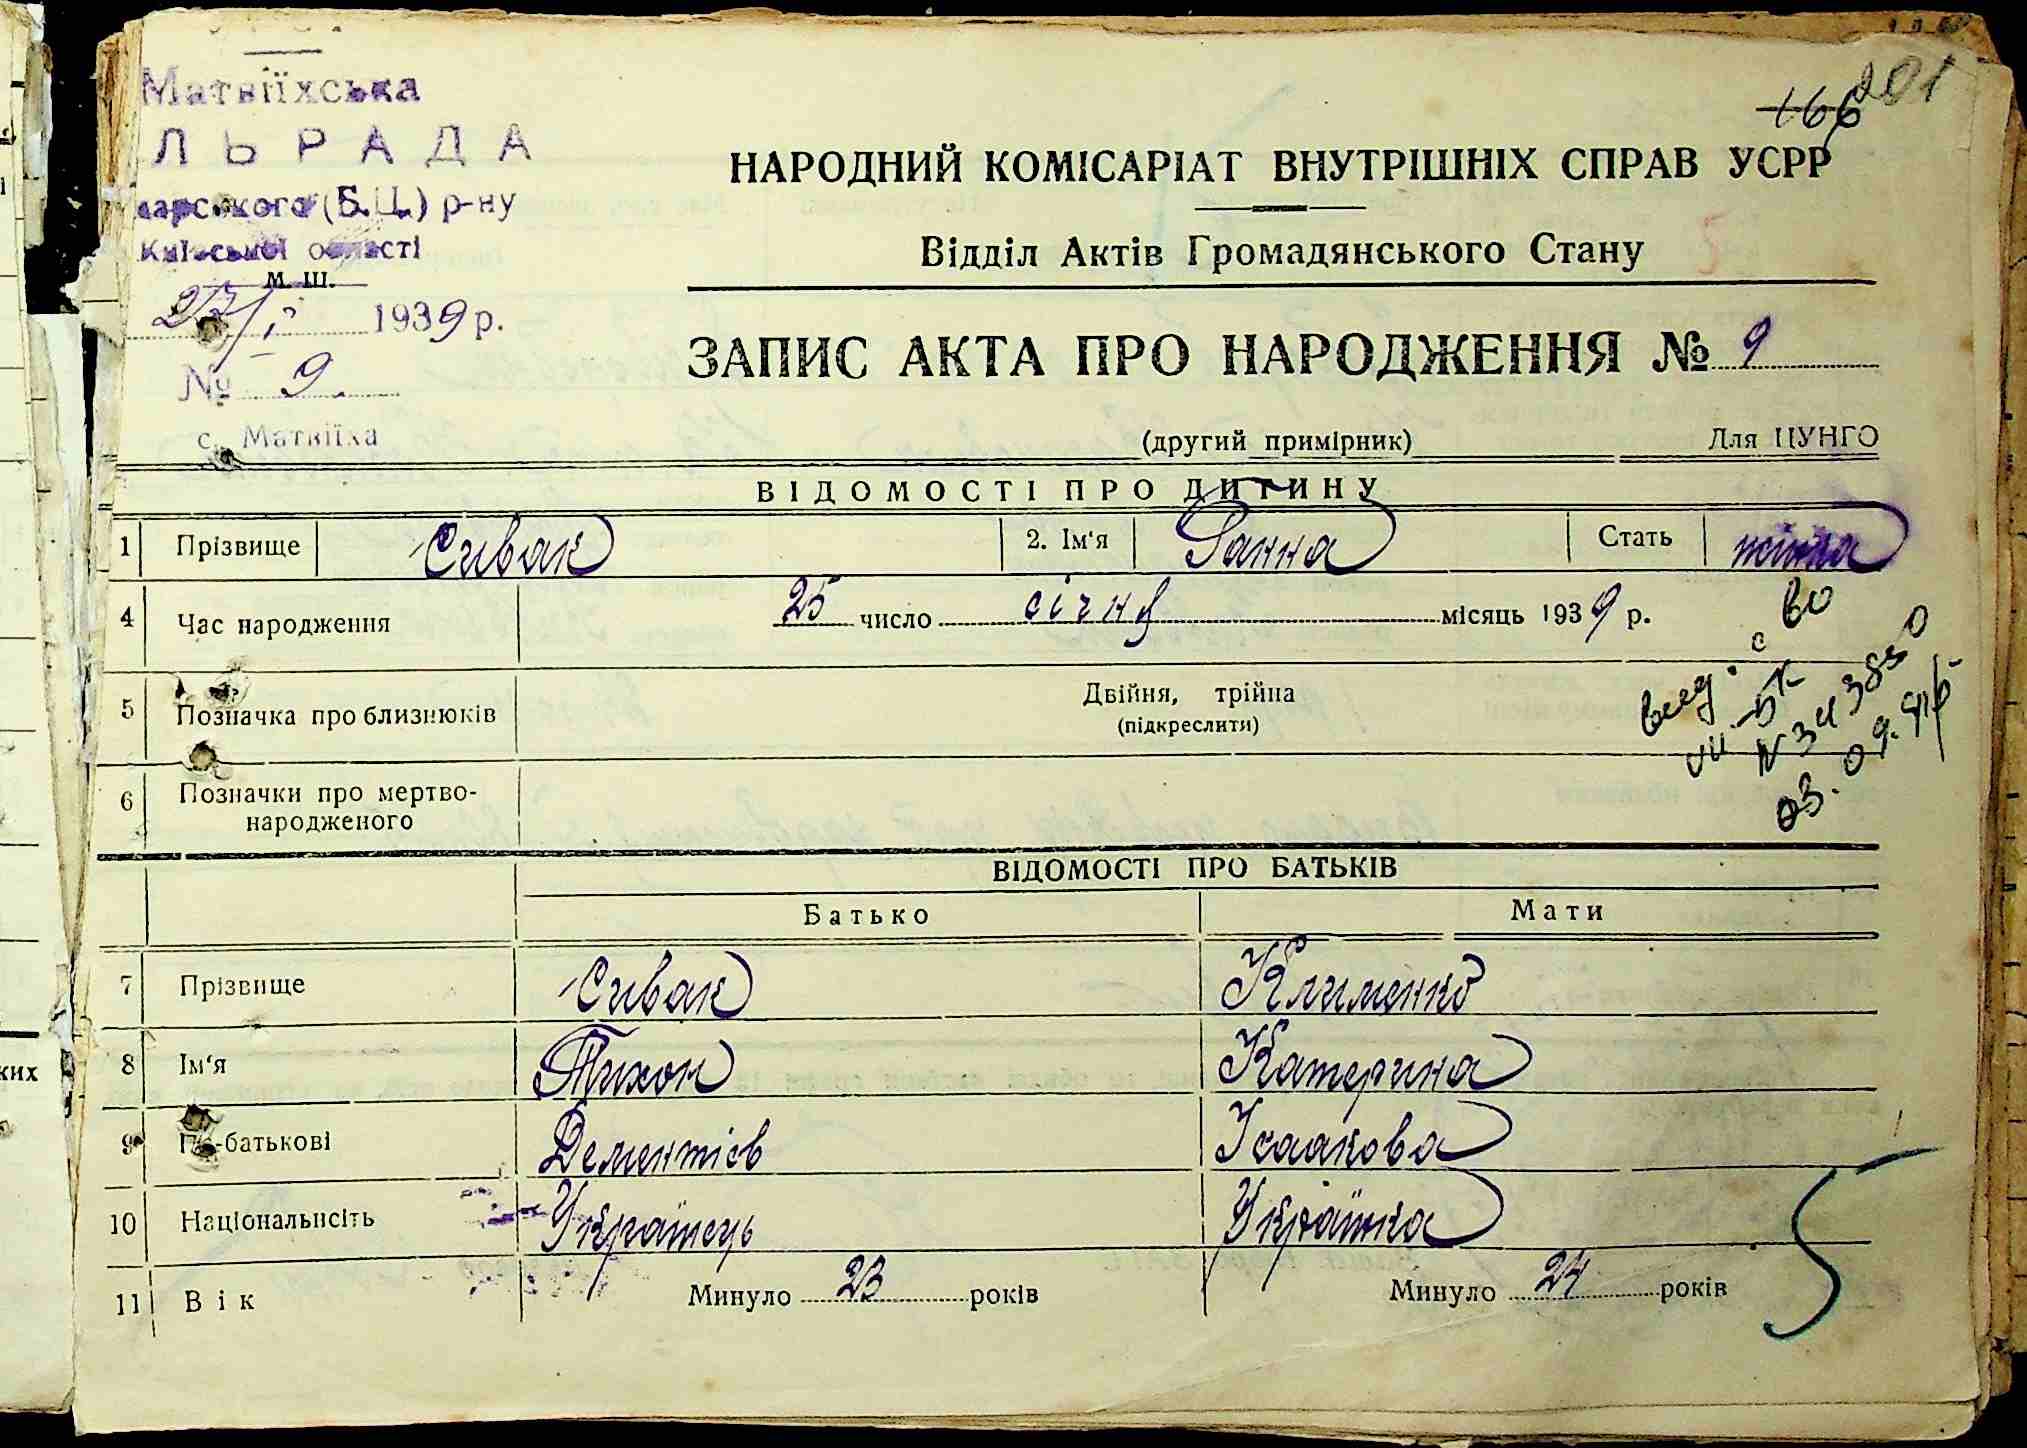 Матвіїхська
ЛЬРАДА
карського (Б.Ц.) р-ну
Київської області
м. ш.
27/I 1939 р.
№ 9.
с. Матвіїха
201
166
НАРОДНИЙ КОМІСАРІАТ ВНУТРІШНІХ СПРАВ УСРР
Відділ Актів Громадянського Стану
5
ЗАПИС АКТА ПРО НАРОДЖЕННЯ № 9
(другий примірник) Для ЦУНГО
ВІДОМОСТІ ПРО ДИТИНУ
1 Прізвище Сивак 2. Ім'я Ганна Стать жінка
4 Час народження 25 число січня місяць 1939 р.
5 Позначка про близнюків Двійня, трійна
(підкреслити)
6 Позначки про мертво-
народженого
03.09.
ВІДОМОСТІ ПРО БАТЬКІВ
Батько Мати
7 Прізвище Сивак Клименко
8 Ім'я Тихон Катерина
9 По-батькові Дементієв Ісаакова
10 Національність Українець Українка
11 Вік Минуло 23 років Минуло 24 років
5
ких